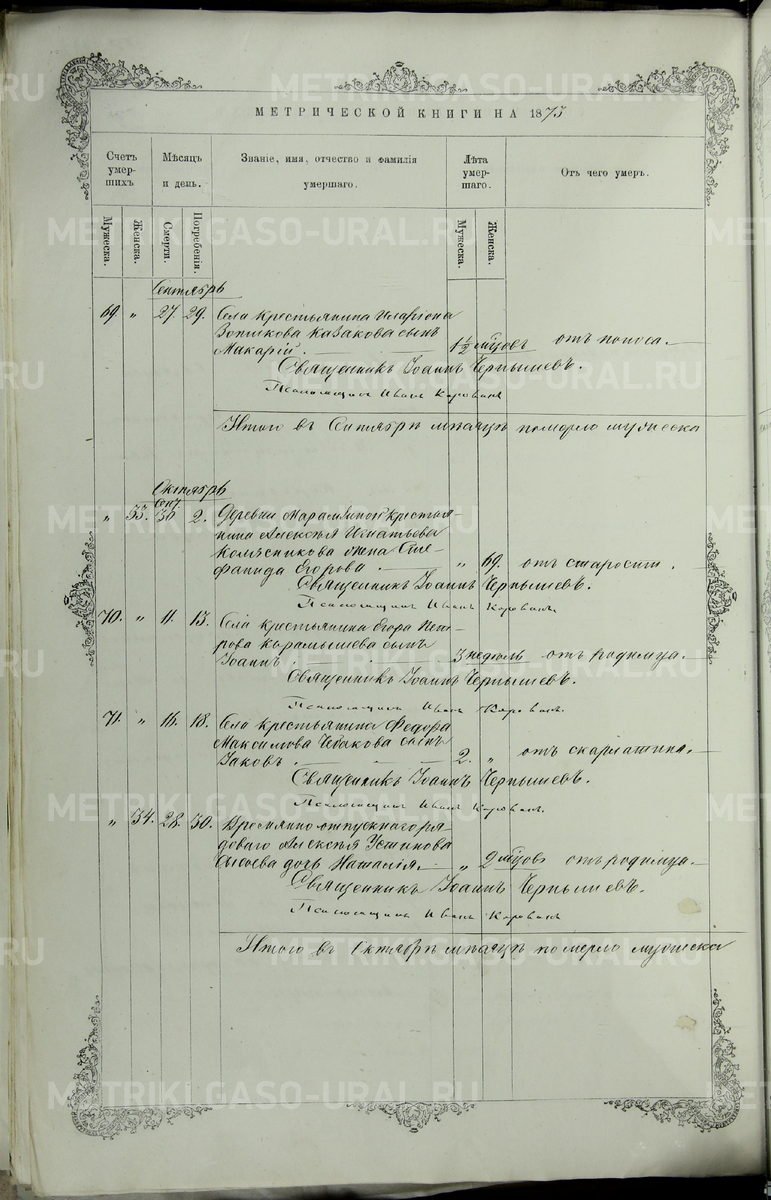 МЕТРИЧЕСКОЙ КНИГИ НА 1875
Счетъ умершихъ
Мѣсяцъ и день.
Званіе, имя, отчество и фамилія умершаго.
Лѣта умершаго.
Отъ чего умеръ.
Мужеска.
Женска.
Смерти.
Погребенія.
Мужеска.
Женска.
Сентябрь
69 " 27 29. Села крестьянина Илларіона
Казакова сынъ
Макарій. 1½ мѣсцовъ отъ поноса.
Священникъ Іоаннъ Чернышевъ.
Псаломщикъ Иванъ
Итого въ Сентябрѣ мѣсяцѣ померло мужеска
Октябрь
Сент.
" 33. 30 2. Деревни крестья-
нина Алексѣя Игнатьева
Колѣсникова жена Сте-
фанида Егорова. " 69. отъ старости.
Священникъ Іоаннъ Чернышевъ.
Псаломщикъ Иванъ
70. " 11. 13. Села крестьянина Егора Пет-
рова Карамышева сынъ
Іоаннъ 3 недѣль отъ родимца.
Священникъ Іоаннъ Чернышевъ.
Псаломщикъ Иванъ
71. " 16. 18. Села крестьянина Федора
Максимова сынъ
Іаковъ. 2. " отъ скарлатины.
Священникъ Іоаннъ Чернышевъ.
Псаломщикъ Иванъ
" 34. 28. 30. Временно-отпускнаго ря-
доваго Алексѣя Устинова
Сысоева дочь Наталія. " 2 мѣсцовъ отъ родимца.
Священникъ Іоаннъ Чернышевъ.
Псаломщикъ Иванъ
Итого въ Октябрѣ мѣсяцѣ померло мужеска
METRIKI.GASO-URAL.RU